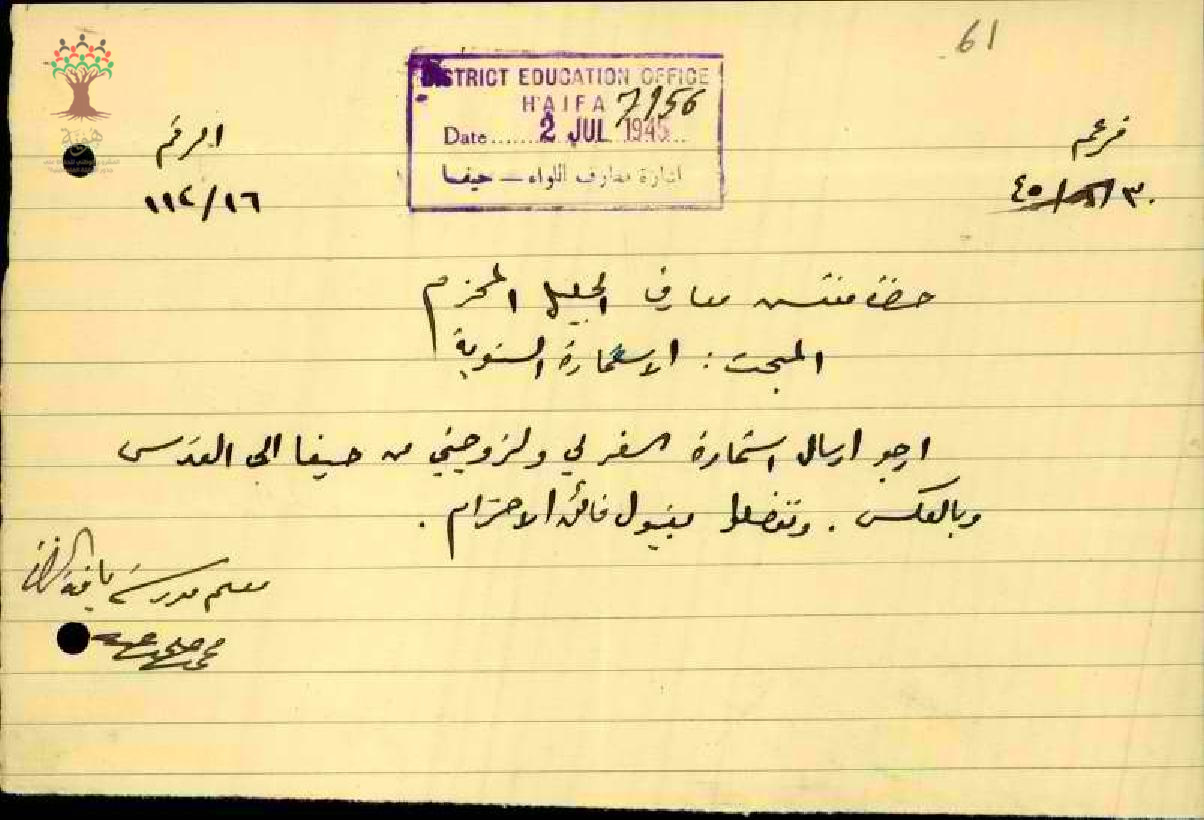 61
DISTRICT EDUCATION OFFICE
HAIFA 7956
Date 2 JUL 1945
ادارة معارف اللواء — حيفا
الرقم
١١٤/١٦
هوية
حضرة مفتش معارف الجليل المحترم
المبحث : الاستمارة السنوية
ارجو ارسال استمارة السفر لي ولزوجتي من حيفا الى القدس
وبالعكس . وتفضلوا بقبول فائق الاحترام .
معلم مدرسة يافة